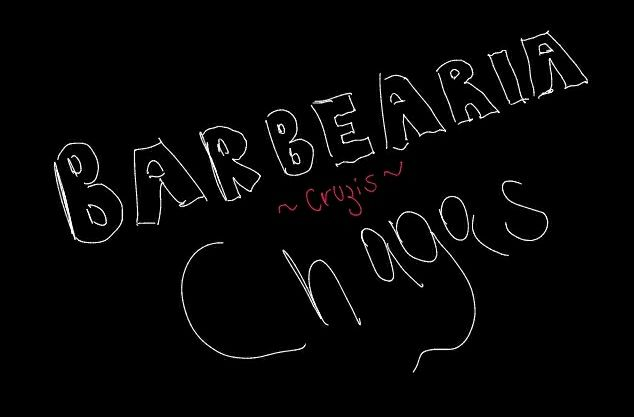 BARBEARIA
~cruzis~
Chagas